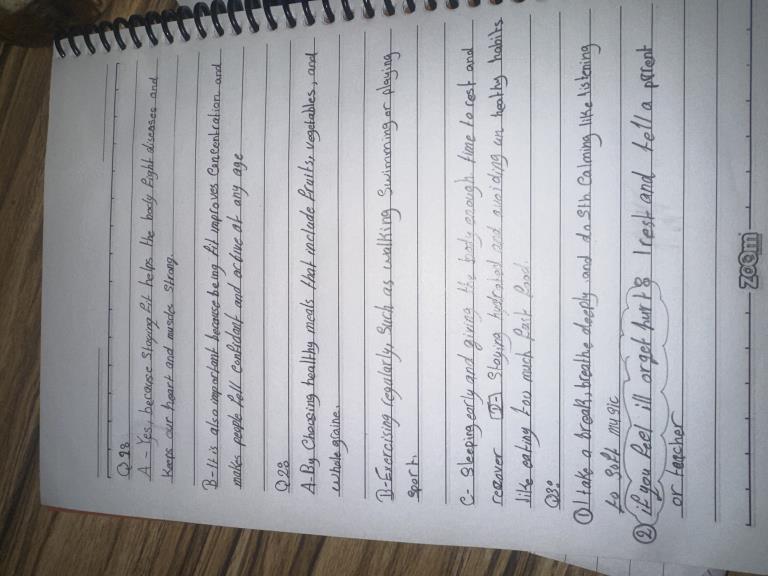 Q28
A - Yes, because staying fit helps the body fight diseases and
keeps our heart and muscles strong.
B-It is also important because being fit improves concentration and
makes people fell confidant and active at any age
Q29
A-By choosing healthy meals that include fruits, vegetables, and
whole graine.
B-Exercising regularly, such as walking swimming or playing
sport.
C- Sleeping early and giving the body enough time to rest and
recover D- Staying hydrated and avoiding un healthy habits
like eating too much fast food.
Q30
① I take a break, breathe deeply and do sth calming like listening
to soft music
② if you feel ill or get hurt I rest and tell a parent
or teacher
zoom